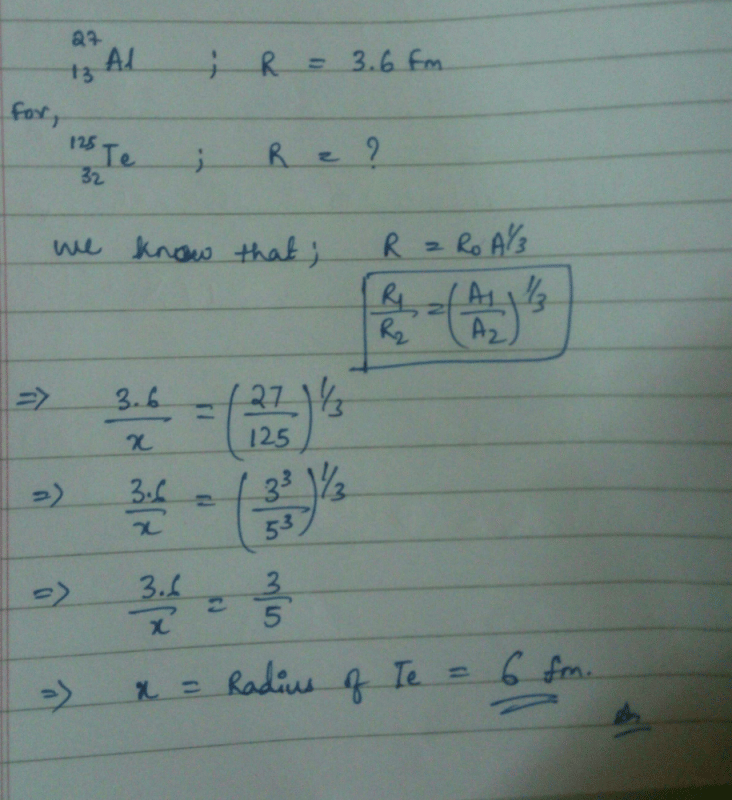 ²⁷₁₃Al ; R = 3.6 fm
For,
¹²⁵₃₂Te ; R = ?
we know that; R = R₀ A^1/3
R₁/R₂ = (A₁/A₂)^1/3
=> 3.6/x = (27/125)^1/3
=> 3.6/x = (3³/5³)^1/3
=> 3.6/x = 3/5
=> x = Radius of Te = 6 fm.